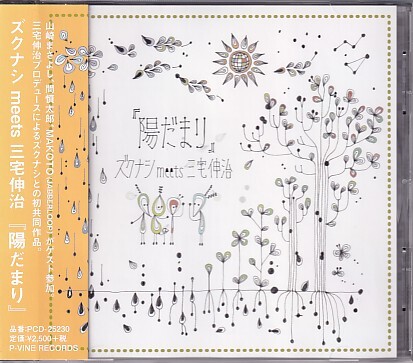 山崎まさよし、間慎太郎、MAKOTO (JABBERLOOP) がゲスト参加
三宅伸治プロデュースによるズクナシとの初共同作品。
ズクナシ meets 三宅伸治 『陽だまり』
品番:PCD-25230
定価:¥2,500+税
P-VINE RECORDS
『陽だまり』
ズクナシ meets 三宅伸治